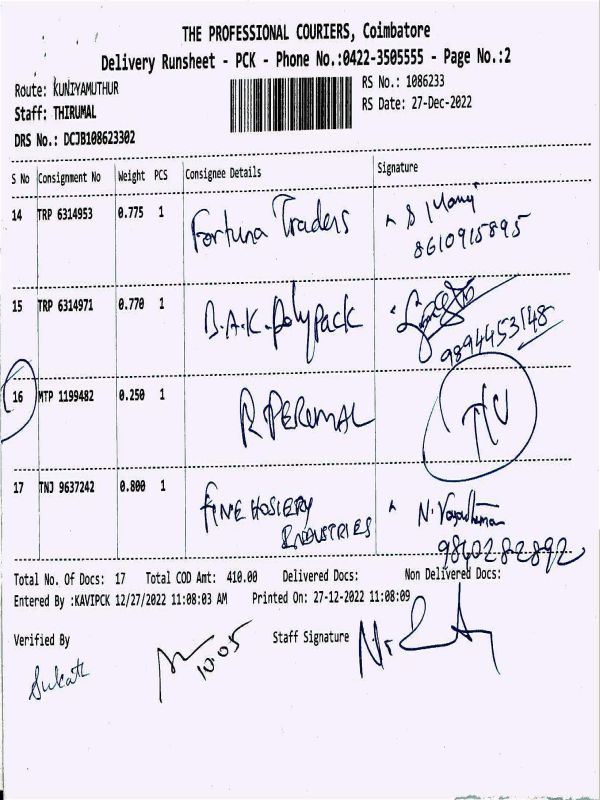 THE PROFESSIONAL COURIERS, Coimbatore
Delivery Runsheet - PCK - Phone No.:0422-3505555 - Page No.:2
Route: KUNIYAMUTHUR
RS No.: 1086233
Staff: THIRUMAL
RS Date: 27-Dec-2022
DRS No.: DCJB108623302
S No Consignment No Weight PCS Consignee Details Signature
14 TRP 6314953 0.775 1 Fortuna Traders S Mani
8610915895
15 TRP 6314971 0.770 1 B.A.K. Polypack
9894453148
16 MTP 1199482 0.250 1 R PERUMAL
17 TNJ 9637242 0.800 1 FINE HOSIERY N.
INDUSTRIES 9840282892
Total No. Of Docs: 17 Total COD Amt: 410.00 Delivered Docs: Non Delivered Docs:
Entered By :KAVIPCK 12/27/2022 11:08:03 AM Printed On: 27-12-2022 11:08:09
Verified By Staff Signature
10.05